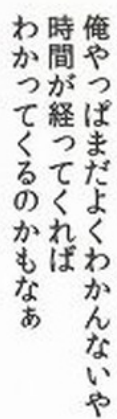 俺やっぱまだよくわかんないや
時間が経ってくれば
わかってくるのかもなぁ